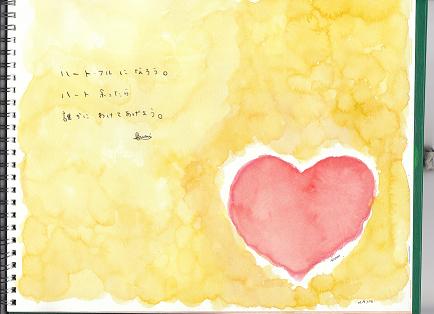 ハートフルになろう。
ハート 余ったら
誰かに わけてあげよう。